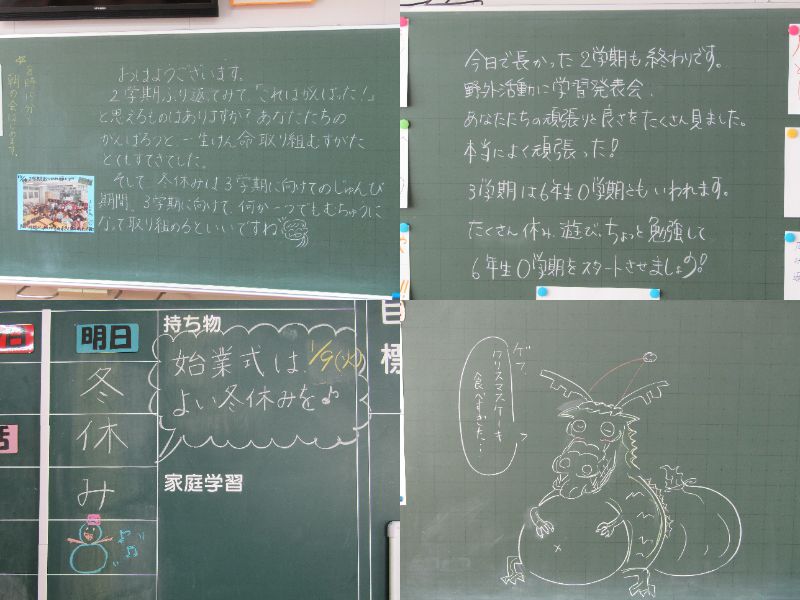 おはようございます。
2学期ふり返ってみて、「これはがんばった!」
と思えるものはありますか?あなたたちの
がんばろうと、一生けん命取り組むすがた
とてもすてきでした。
そして、冬休みは、3学期に向けてのじゅんび
期間。3学期に向けて、何か一つでもむちゅうに
なって取り組めるといいですね
今日で長かった2学期も終わりです。
野外活動に学習発表会、
あなたたちの頑張りと良さをたくさん見ました。
本当によく頑張った!
3学期は6年生0学期ともいわれます。
たくさん休み、遊び、ちょっと勉強して
6年生0学期をスタートさせましょう!
明日
冬
休
み
持ち物
始業式は、1/9(火)
よい冬休みを♪
家庭学習
目
標
ゲフ、
クリスマスケーキ
食べすぎた…